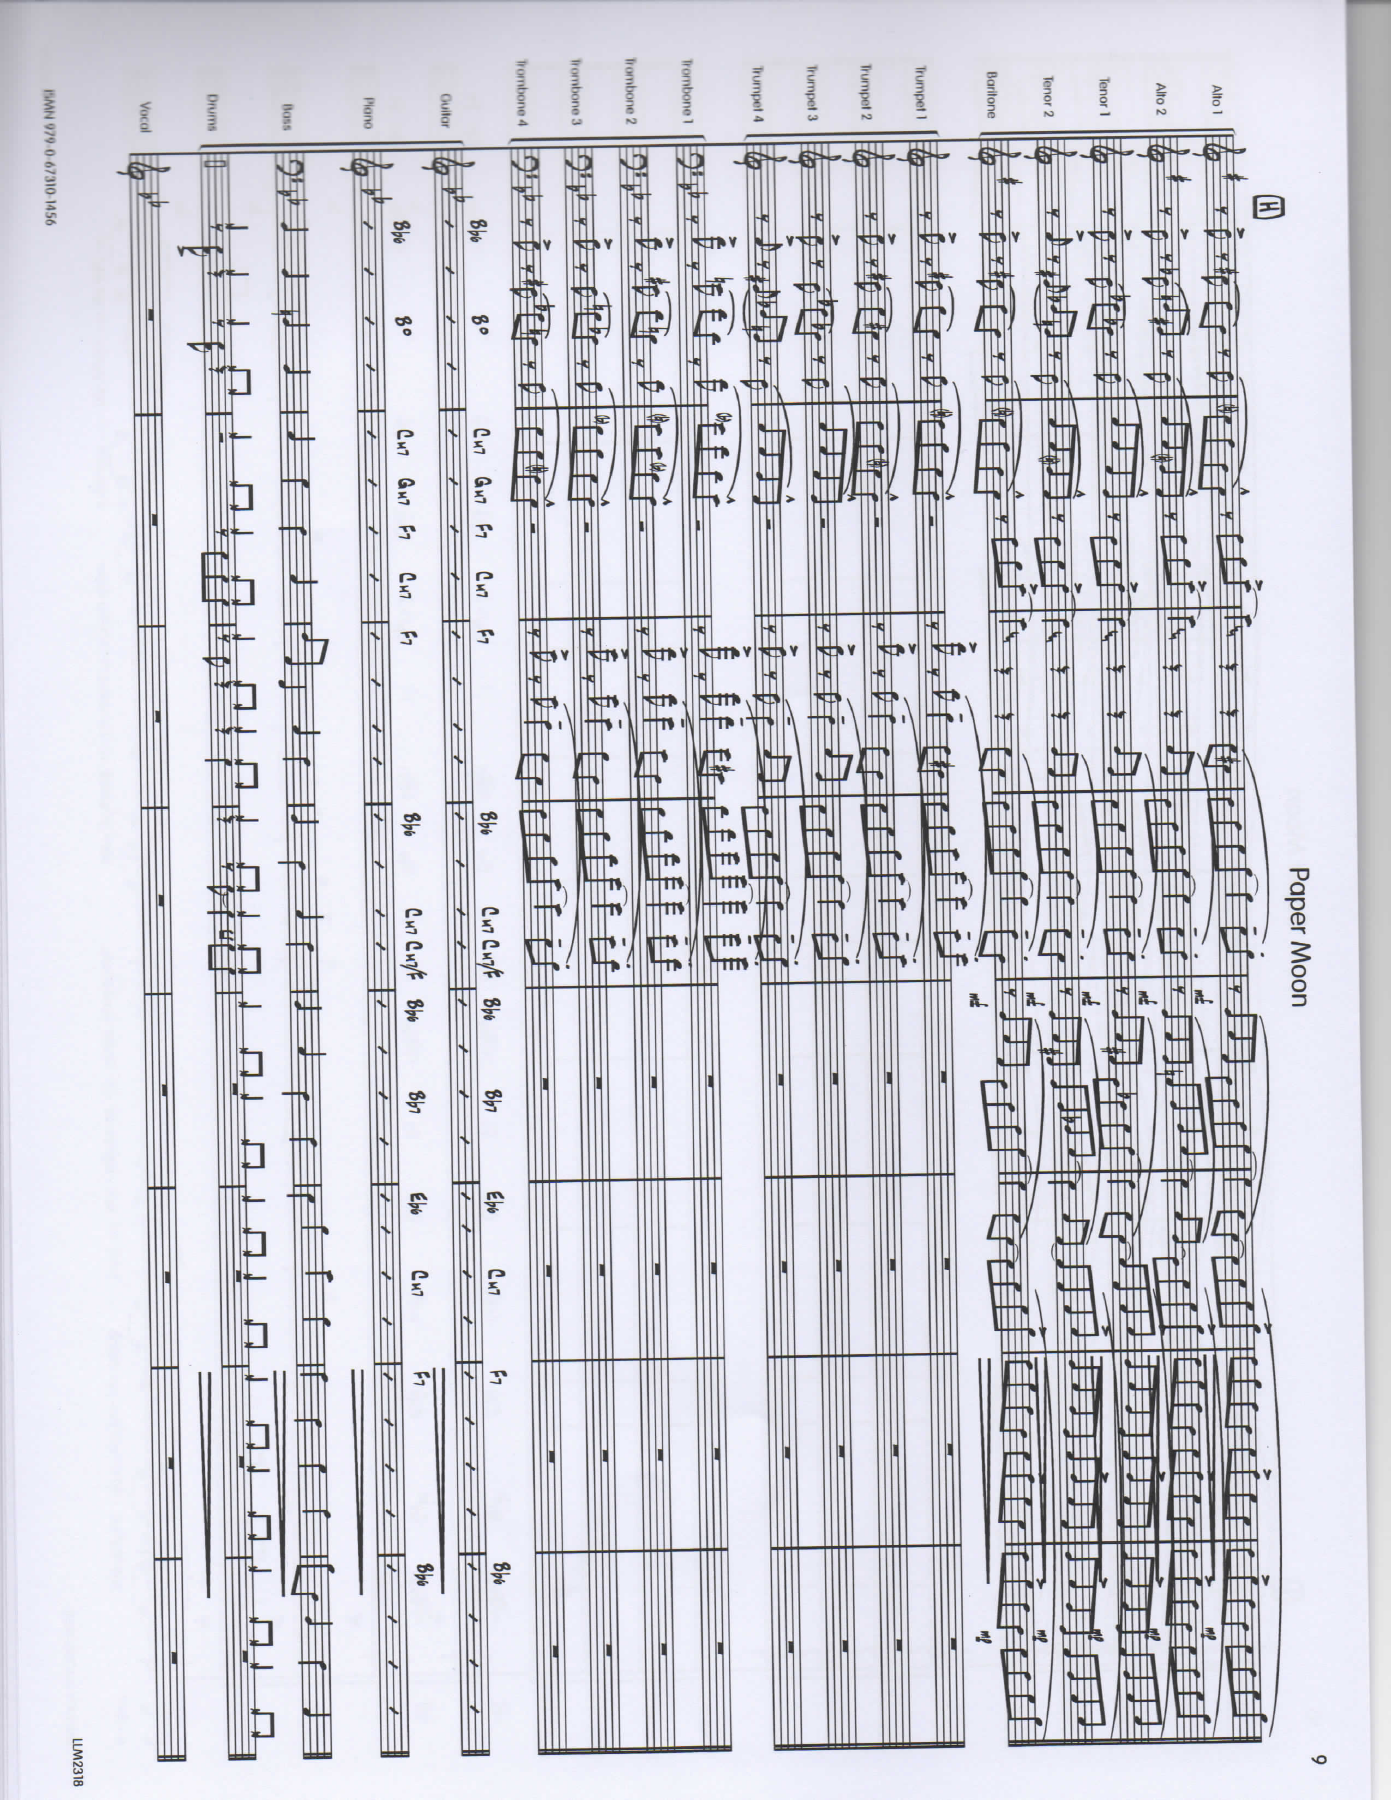 Paper Moon
9
H
Alto 1
Alto 2
Tenor 1
Tenor 2
Baritone
mf mp
mf mp
mf mp
mf mp
mf mp
Trumpet 1
Trumpet 2
Trumpet 3
Trumpet 4
Trombone 1
Trombone 2
Trombone 3
Trombone 4
Guitar
B♭6 B° CM7 GM7 F7 CM7 F7 B♭6 CM7 CM7/F B♭6 B♭7 E♭6 CM7 F7 B♭6
Piano
B♭6 B° CM7 GM7 F7 CM7 F7 B♭6 CM7 CM7/F B♭6 B♭7 E♭6 CM7 F7 B♭6
Bass
Drums
Vocal
ISMN 979-0-67310-1456
LLM2318